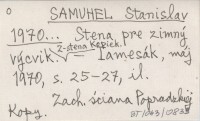 SAMUHEL Stanislav
1970... Stena pre zimný
výcvik. Z-stena Kopiek.
Iamesák, máj
1970, s. 25-27, il.
Zach. ściana Popradzkiej
Kopy.